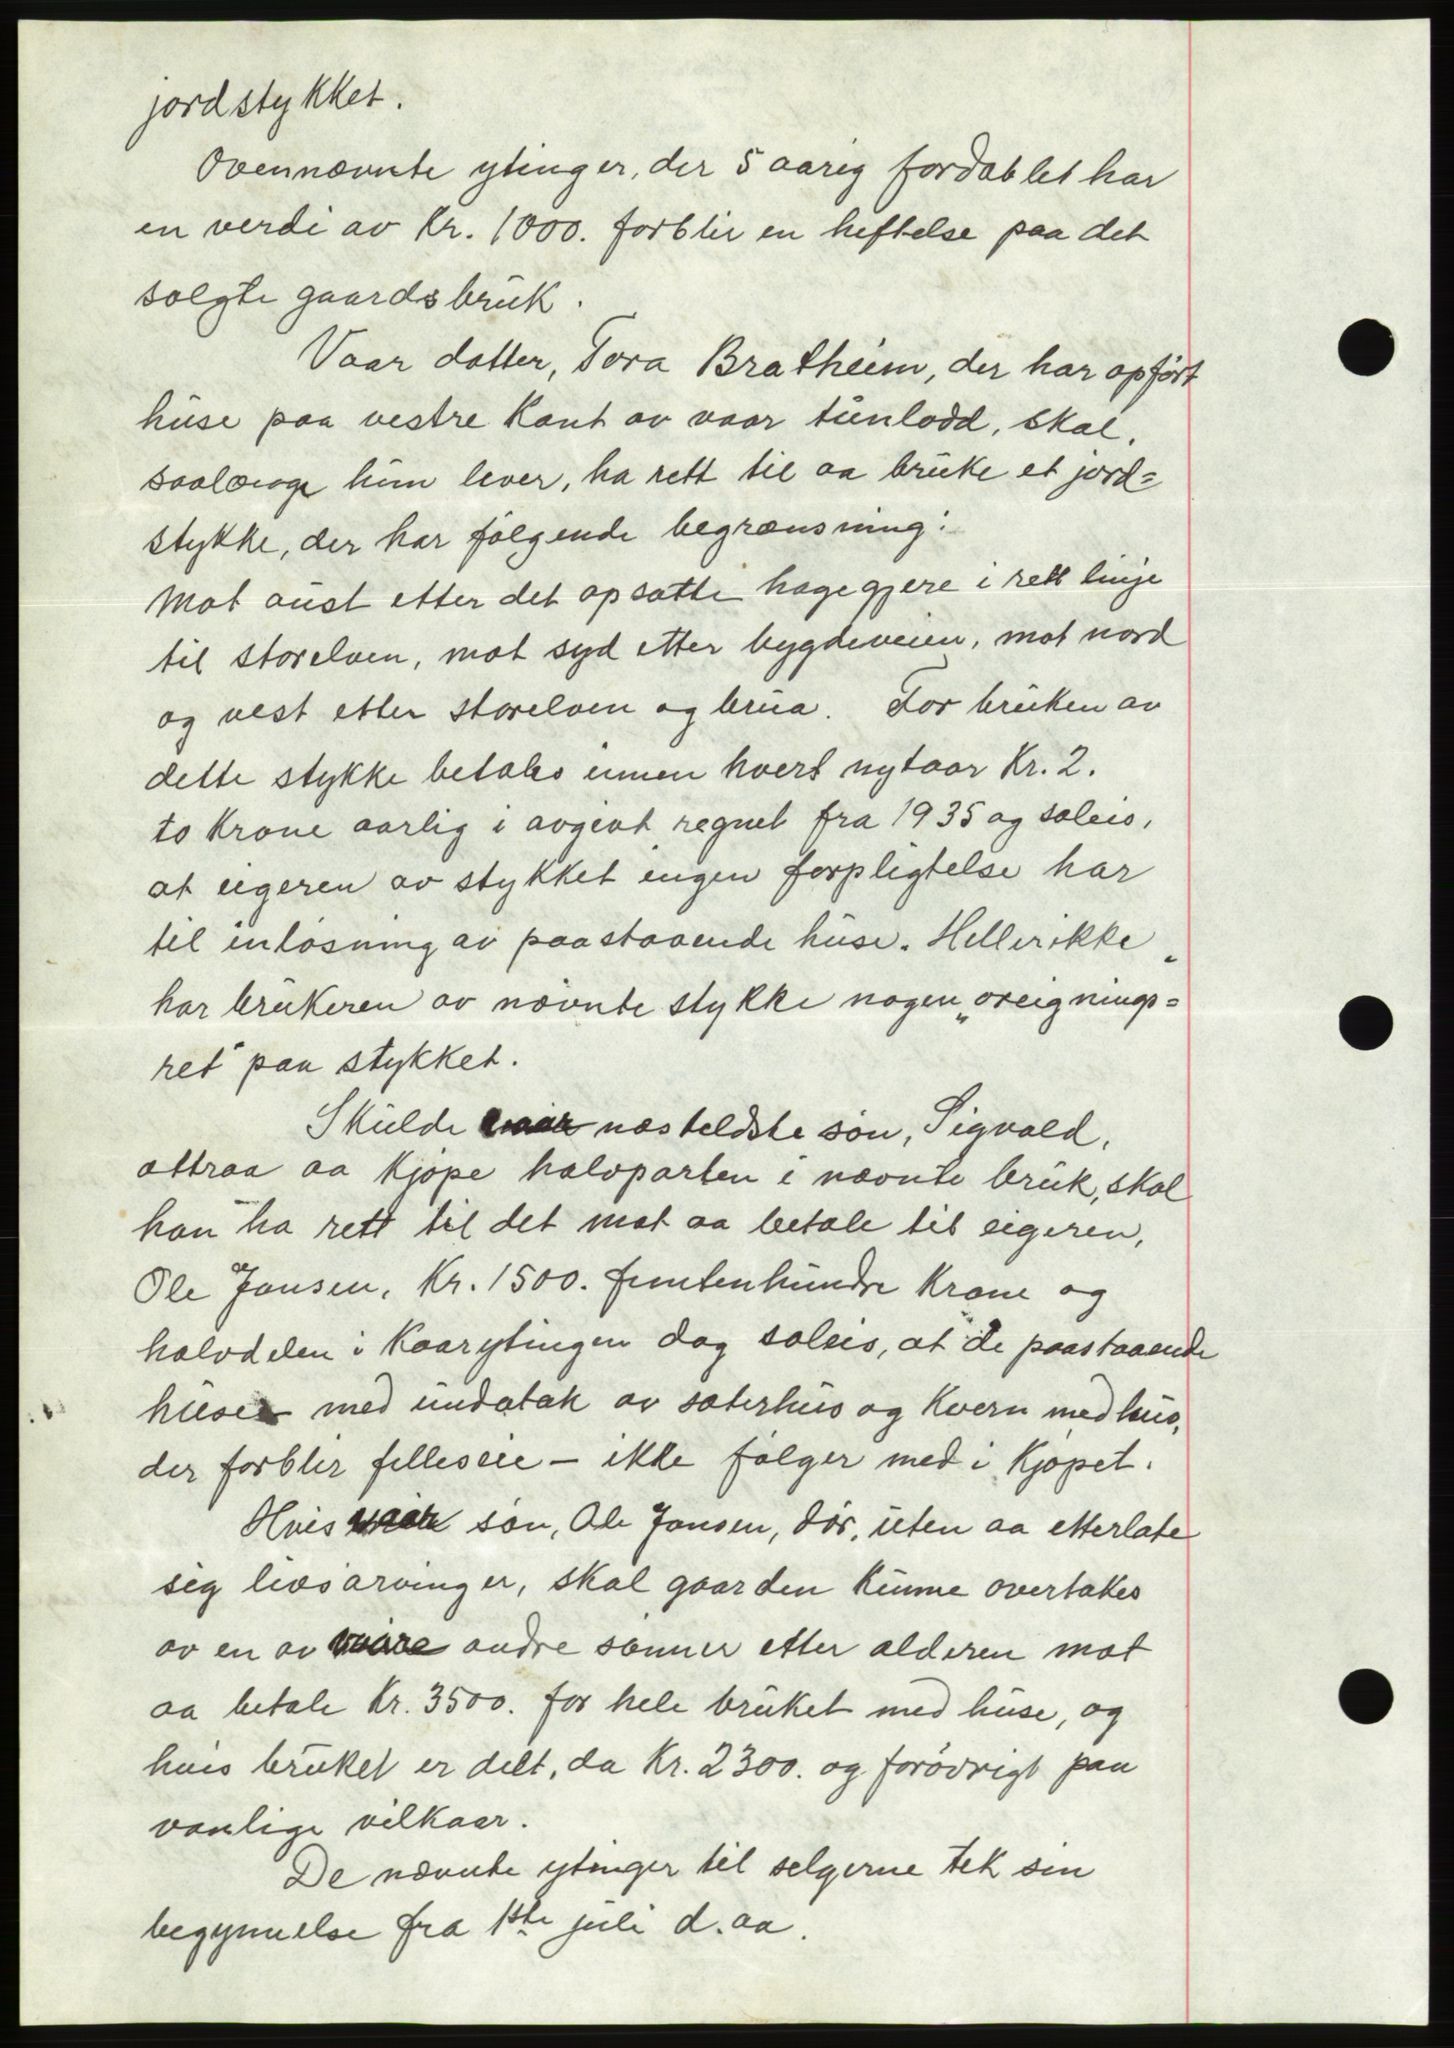 jordstykket.
Ovennævnte ytinger, der 5 aarig fordoblet har
en verdi av Kr. 1000. forblir en heftelse paa det
solgte gaardsbruk.
Vaar datter, Tora Bratheim, der har opført
huse paa vestre Kant av vaar tunlodd, skal,
saalænge hun lever, ha rett til aa bruke et jord=
stykke, der har følgende begrænsning:
Mot aust etter det opsatte hagegjere i rett linje
til storelven, mot syd etter bygdeveien, mot nord
og vest etter storelven og brua. For bruken av
dette stykke betales innen hvert nytaar Kr. 2.
to Krone aarlig i avgivt regnet fra 1935 og soleis,
at eigeren av stykket ingen forpligtelse har
til inløsning av paastaaende huse. Heller ikke
har brukeren av nævnte stykke nogen "oreignings=
ret" paa stykket.
Skulde næsteldste søn, Sigvald,
attraa aa Kjøpe halvparten i nævnte bruk, skal
han ha rett til det mot aa betale til eigeren,
Ole Jansen, Kr. 1500. femtenhundre Krone og
halvdelen i Kaarytingen dog soleis, at de paastaaende
huse med undatak av sæterhus og Kvern med hus,
der forblir felleseie - ikke følger med i Kjøpet.
Hvis søn, Ole Jansen, dør, uten aa etterlate
sig livsarvinger, skal gaarden Kunne overtakes
av en av andre sønner etter alderen mot
aa betale Kr. 3500. for hele bruket med huse, og
hvis bruket er delt, da Kr. 2300. og forøvrigt paa
vanlige vilkaar.
De nævnte ytinger til selgerne tek sin
begynnelse fra 1ste juli d. aa.